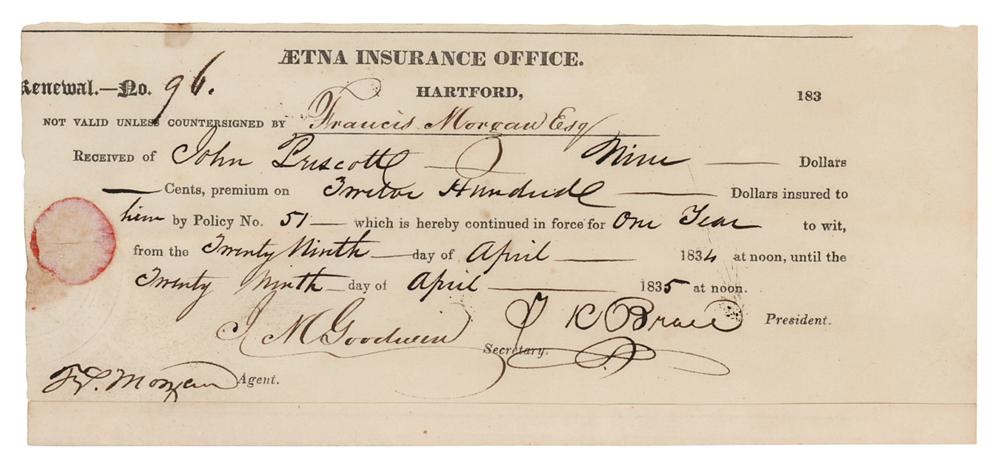 ÆTNA INSURANCE OFFICE.
Renewal.—No. 96. HARTFORD, 183
NOT VALID UNLESS COUNTERSIGNED BY Francis Morgan Esq
RECEIVED OF John Priscott — Nine — Dollars
— Cents, premium on Twelve Hundred — Dollars insured to
him by Policy No. 51 — which is hereby continued in force for One Year to wit,
from the Twenty Ninth — day of April — 1834 at noon, until the
Twenty Ninth — day of April — 1835 at noon.
J M Goodwin Secretary. T K Brace President.
F. Morgan Agent.